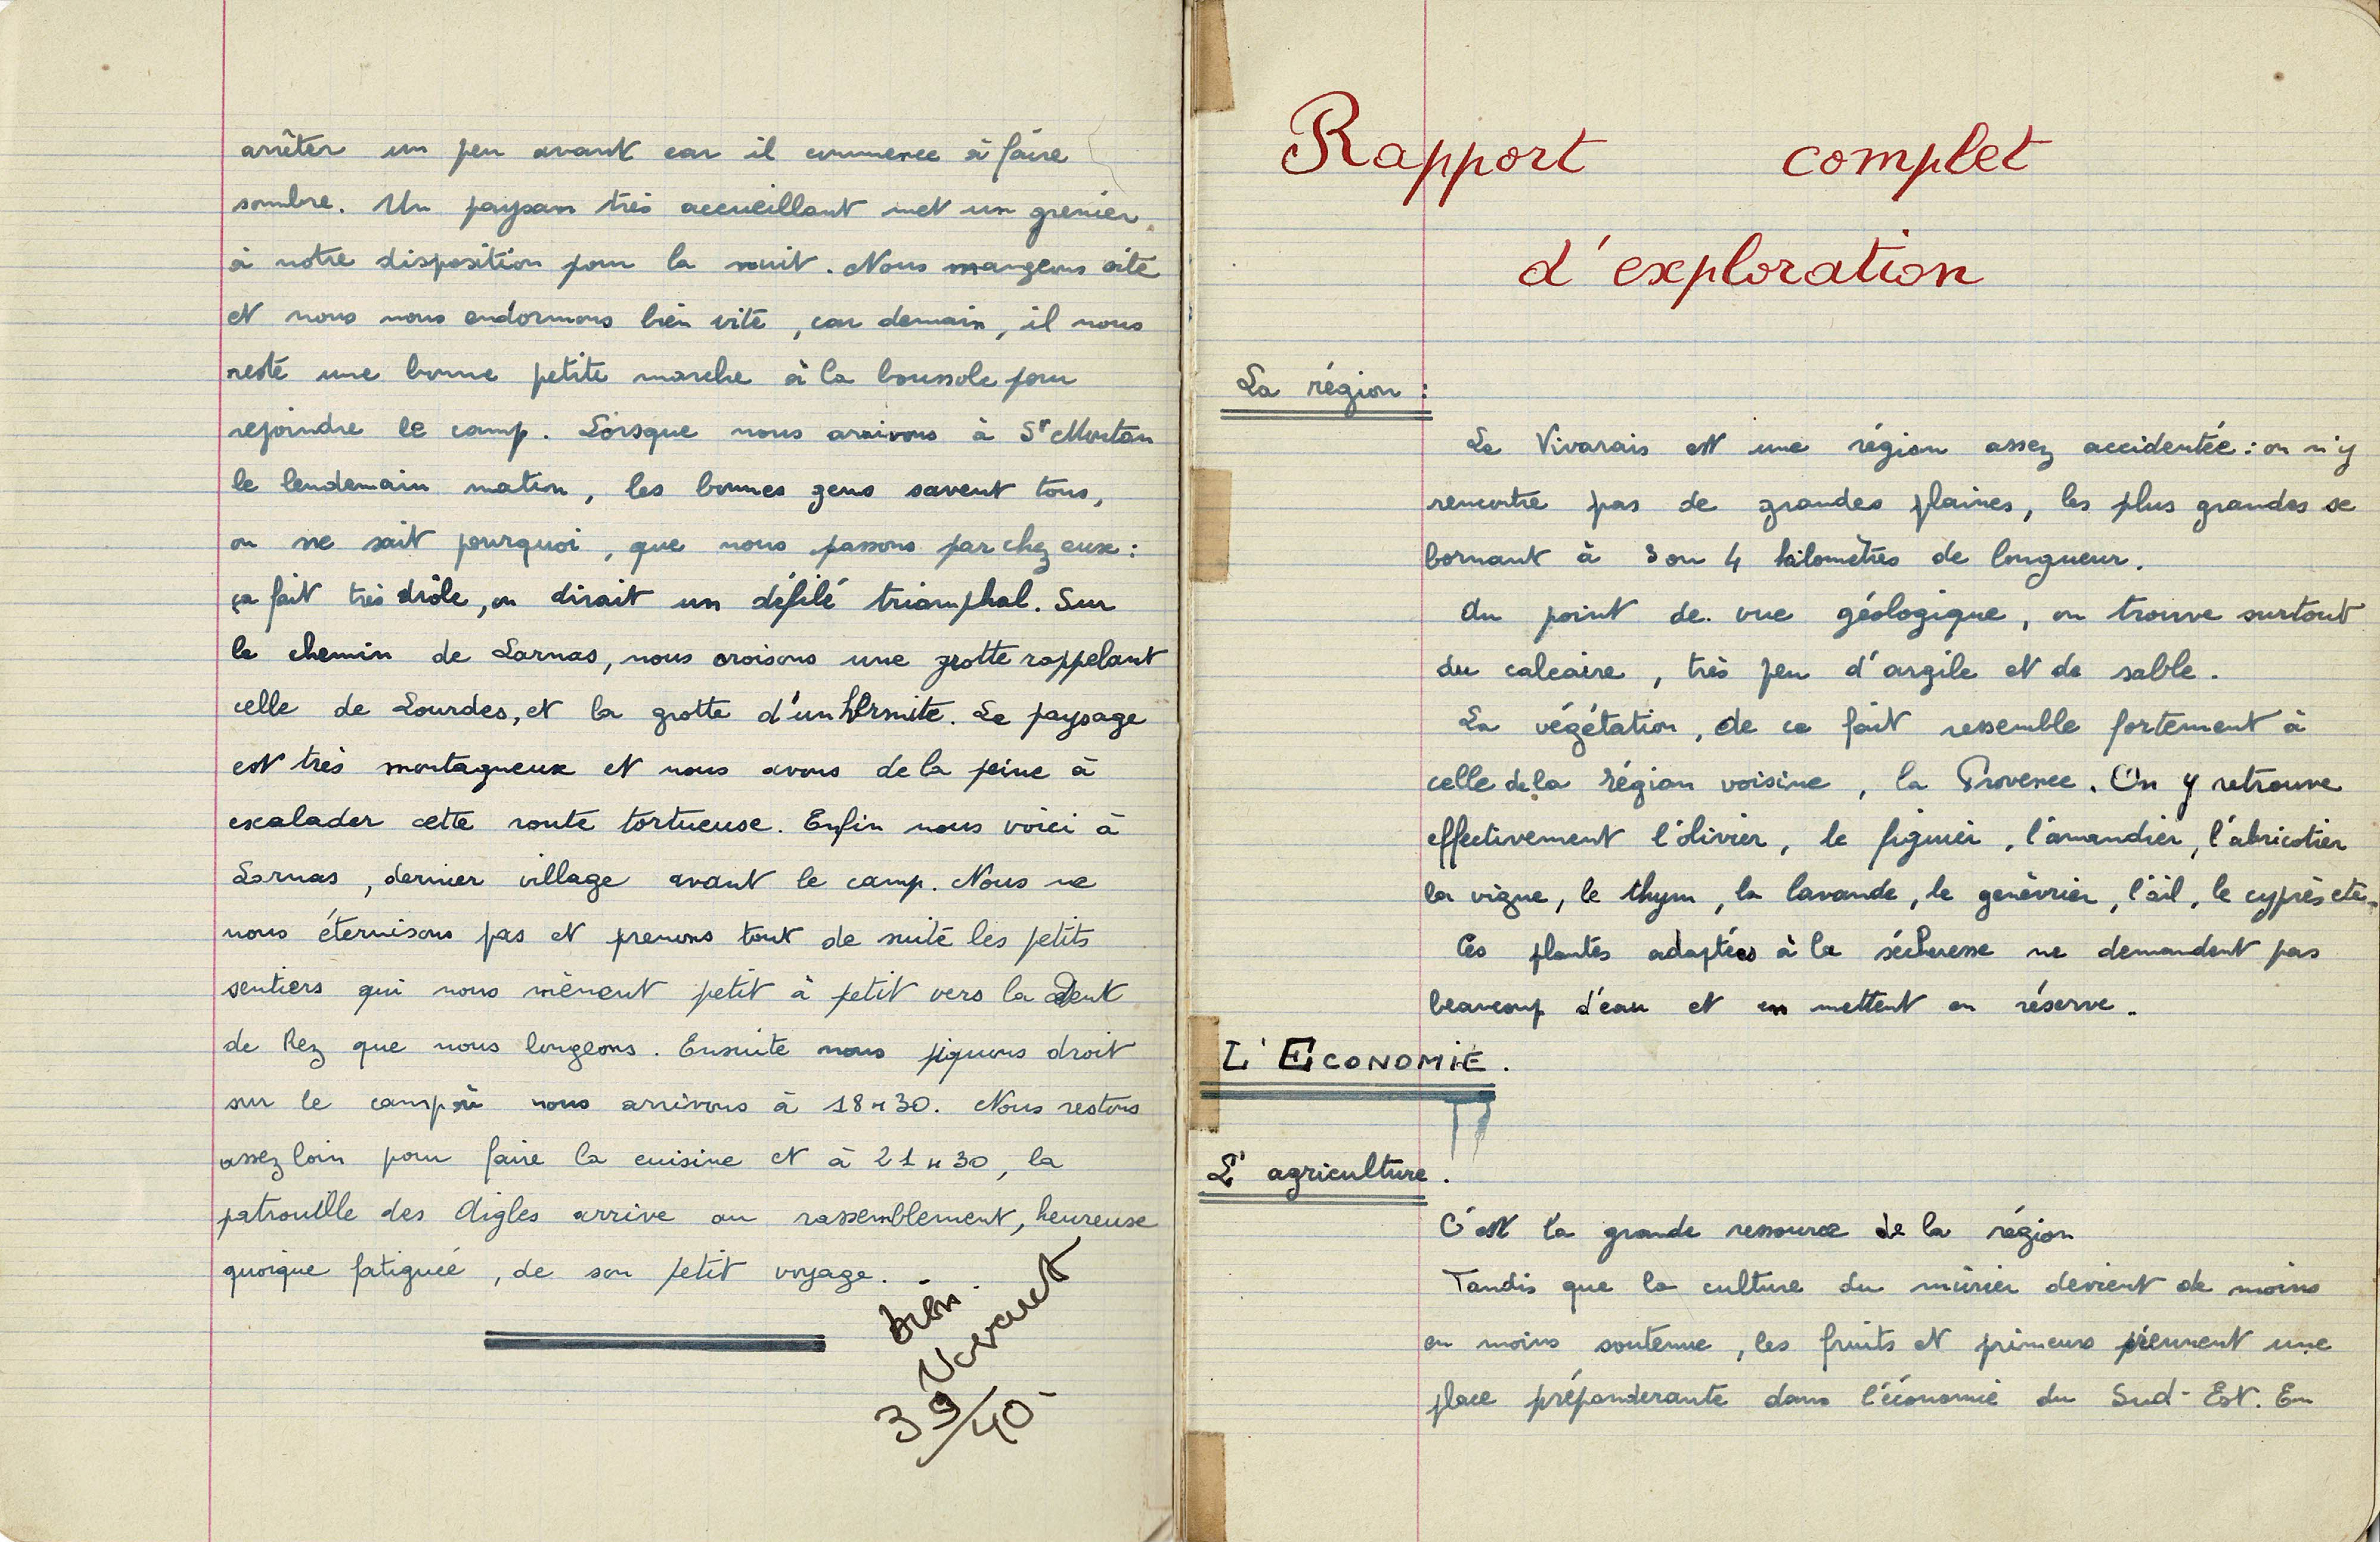 arrêter un peu avant car il commence à faire
sombre. Un paysan très accueillant met un grenier
à notre disposition pour la nuit. Nous mangeons vite
et nous nous endormons bien vite, car demain, il nous
reste une bonne petite marche à la boussole pour
rejoindre le camp. Lorsque nous arrivons à St Montan
le lendemain matin, les bonnes gens savent tous,
on ne sait pourquoi, que nous passons par chez eux :
ça fait très drôle, on dirait un défilé triomphal. Sur
le chemin de Larnas, nous croisons une grotte rappelant
celle de Lourdes, et la grotte d'un hermite. Le paysage
est très montagneux et nous avons de la peine à
escalader cette route tortueuse. Enfin nous voici à
Larnas, dernier village avant le camp. Nous ne
nous éternisons pas et prenons tout de suite les petits
sentiers qui nous mènent petit à petit vers la Dent
de Rez que nous longeons. Ensuite nous piquons droit
sur le camp où nous arrivons à 18 H 30. Nous restons
assez loin pour faire la cuisine et à 21 H 30, la
patrouille des Aigles arrive au rassemblement, heureuse
quoique fatiguée, de son petit voyage.
bien.
39/40-
Rapport complet
d'exploration
La région :
Le Vivarais est une région assez accidentée : on n'y
rencontre pas de grandes plaines, les plus grandes se
bornant à 3 ou 4 kilomètres de longueur.
Au point de vue géologique, on trouve surtout
du calcaire, très peu d'argile et de sable.
La végétation, de ce fait ressemble fortement à
celle de la région voisine, la Provence. On y retrouve
effectivement l'olivier, le figuier, l'amandier, l'abricotier
la vigne, le thym, la lavande, le genévrier, l'ail, le cyprès etc.
Ces plantes adaptées à la sécheresse ne demandent pas
beaucoup d'eau et en mettent en réserve.
L'ECONOMIE.
L'agriculture.
C'est la grande ressource de la région
Tandis que la culture du mûrier devient de moins
en moins soutenue, les fruits et primeurs prennent une
place prépondérante dans l'économie du Sud-Est. En